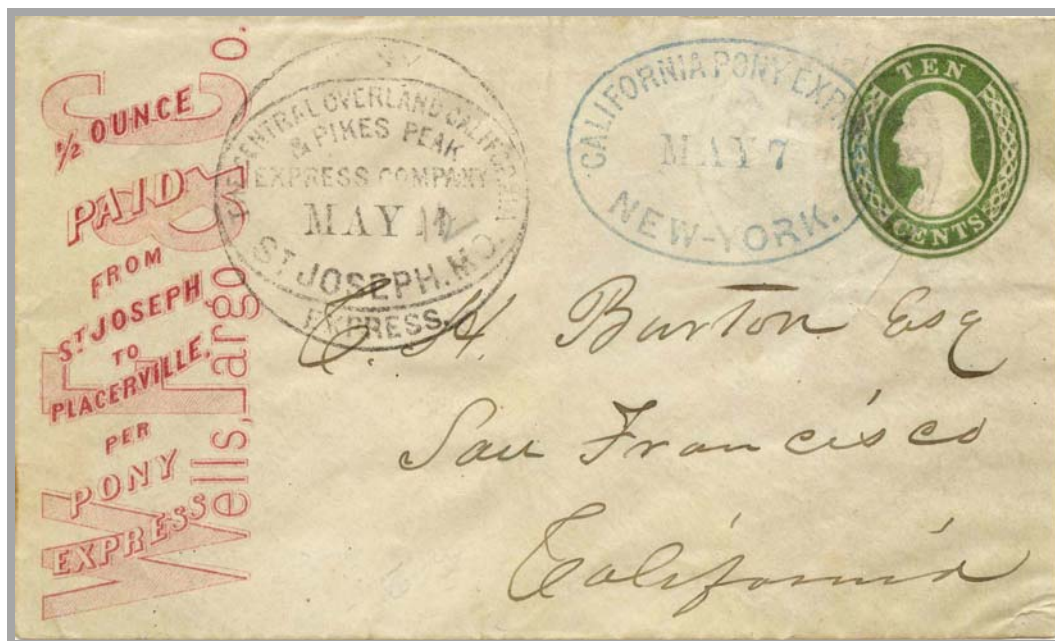 ½ OUNCE
PAID
FROM
ST JOSEPH
TO
PLACERVILLE.
PER
PONY
EXPRESS
Wells, Fargo & Co.
THE CENTRAL OVERLAND CALIFORNIA
& PIKES PEAK
EXPRESS COMPANY
MAY
ST JOSEPH. MO.
EXPRESS.
CALIFORNIA PONY EXPRE
MAY 7
NEW-YORK.
TEN
CENTS
E. H. Burton Esq
San Francisco
California